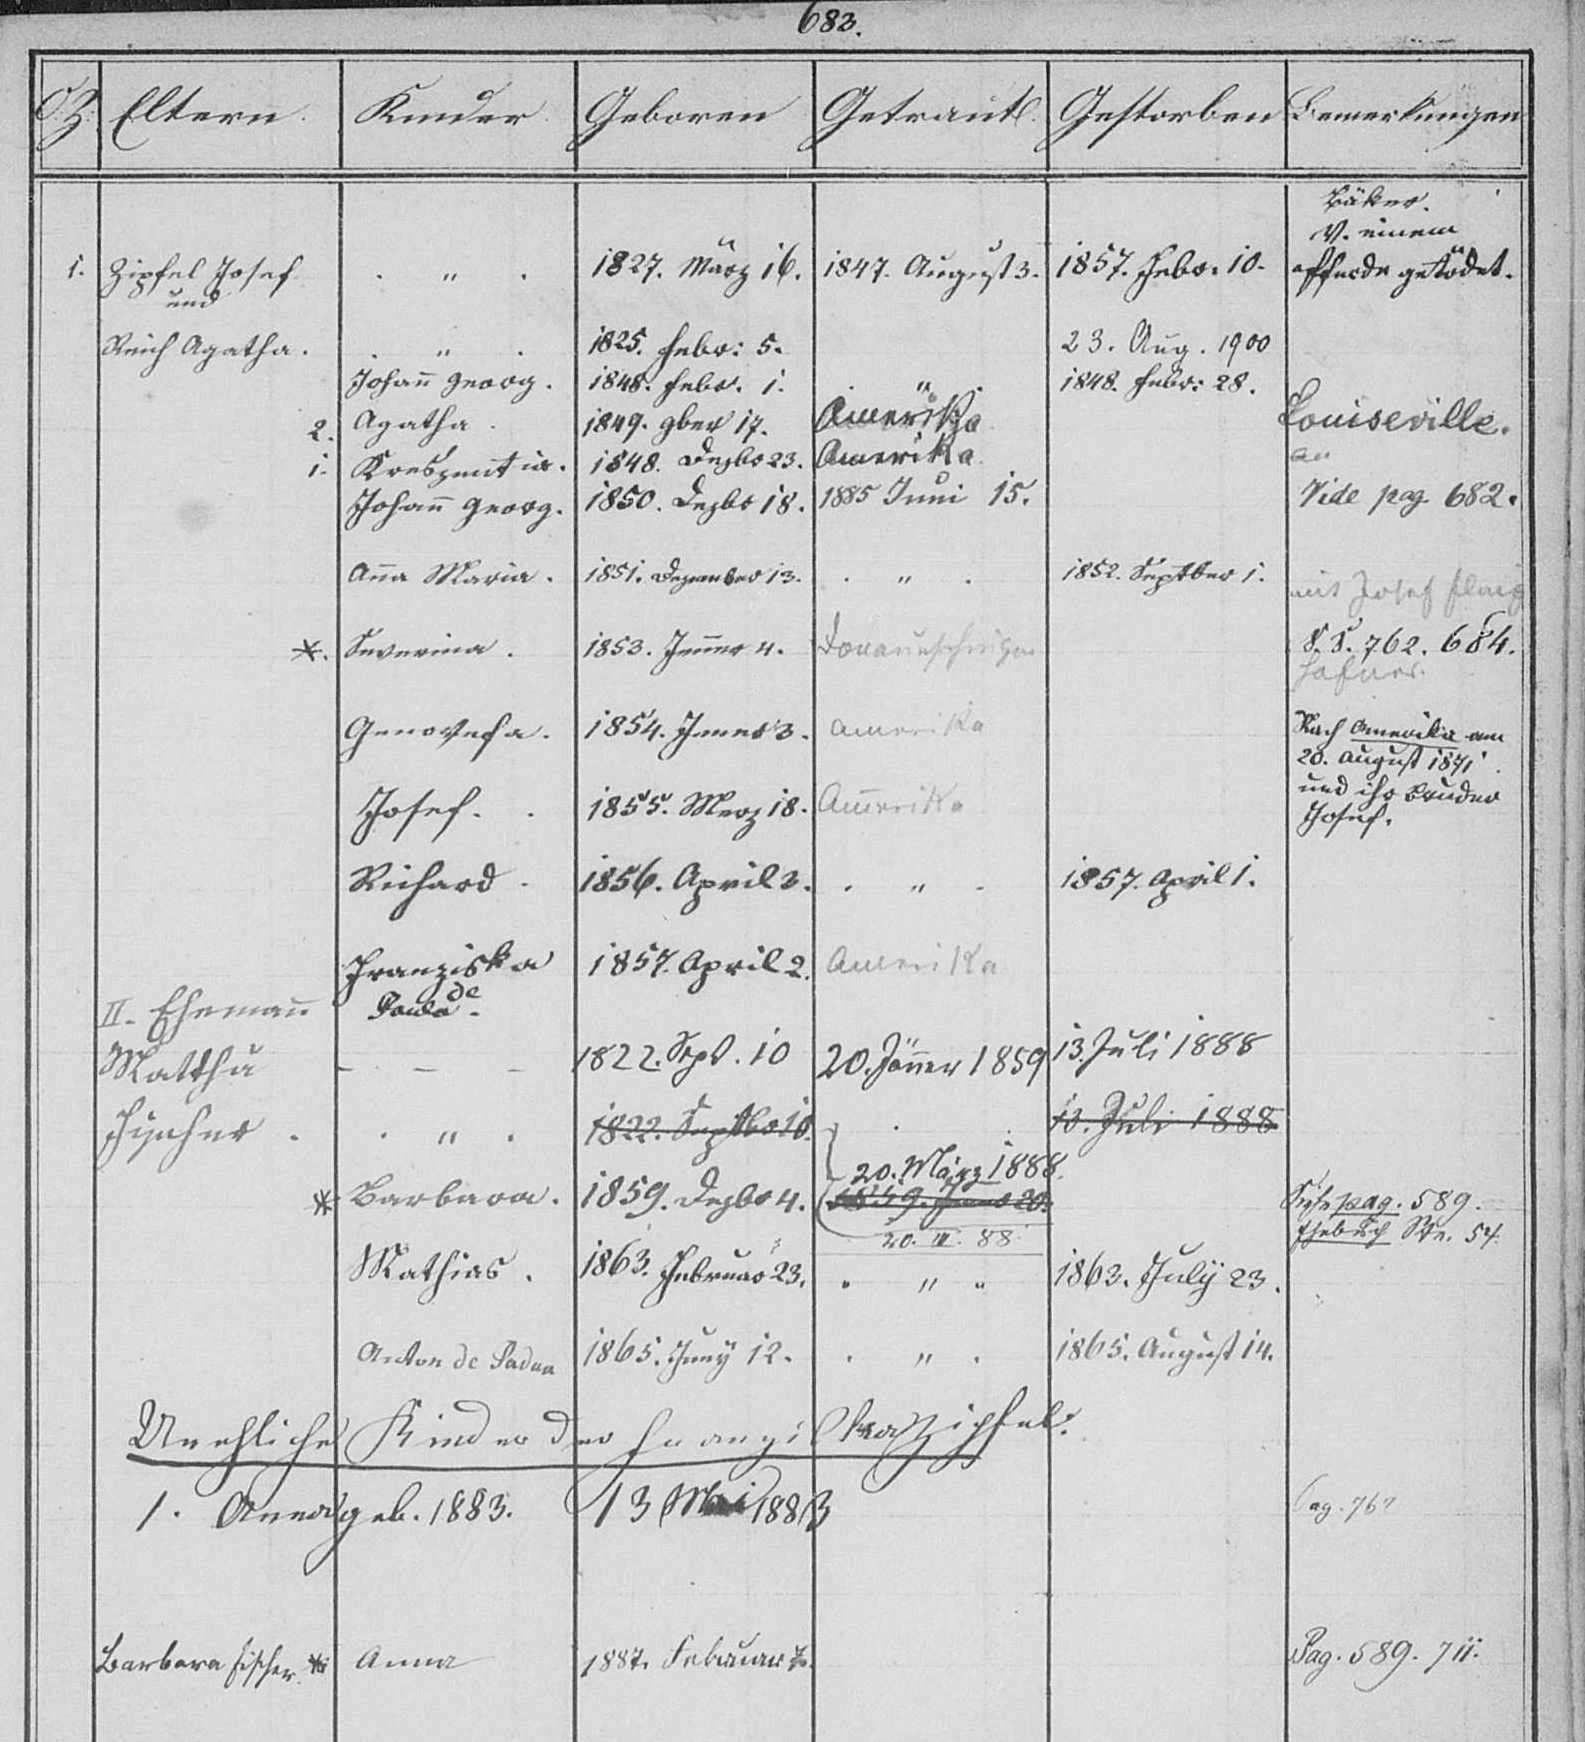 683.
O.Z. Eltern. Kinder. Geboren Getraut. Gestorben Bemerkungen
Bäker.
V. einem
1. Zipfel Josef . " . 1827. März 16. 1847. August 3. 1857. Febr. 10. Pferde getödet.
und
Reich Agatha. . " . 1825. Febr: 5. 23. Aug. 1900
Johann Georg. 1848. Febr. 1. . " . 1848. Febr: 28.
2. Agatha. 1849. 9ber 17. Amerika Louiseville.
1. Kreszentia. 1848. Dezbr 23. Amerika
Johann Georg. 1850. Dezbr 18. 1885 Juni 15. Vide pag. 682.
Anna Maria. 1851. Dezember 13. . " . 1852. Septber 1.
mit Josef Flaig
*. Severina. 1853. Jenner 4. Donaueschingen S. S. 762. 684.
Hafner.
Genovefa. 1854. Jenner 3. Amerika Nach Amerika am
20. August 1871
und ihr Bruder
Josef. . 1855. Merz 18. Amerika Josef.
Richard. 1856. April 3. . " . 1857. April 1.
Franziska 1857. April 2. Amerika
II. Ehemann de Paula.
Matthä - - - 1822. Sept. 10 20. Jänner 1859 13. Juli 1888
Fischer. . " . 1822. Septbr 10. . . 13. Juli 1888
20. März 1888.
* Barbara. 1859. Dezbr 4. 1859. Jenner 20. Siehe pag. 589.
20. III. 88 Ehebuch Ste. 54.
Mathias. 1863. Februar 23. . " . 1863. July 23.
Anton de Padua 1865. Juny 12. . " . 1865. August 14.
Unehliche Kinder der Franziska Zipfel:
1. Anna geb. 1883. 13 Mai 1883 Pag. 767
Barbara Fischer * Anna 1887. Februar 7. Pag. 589. 711.